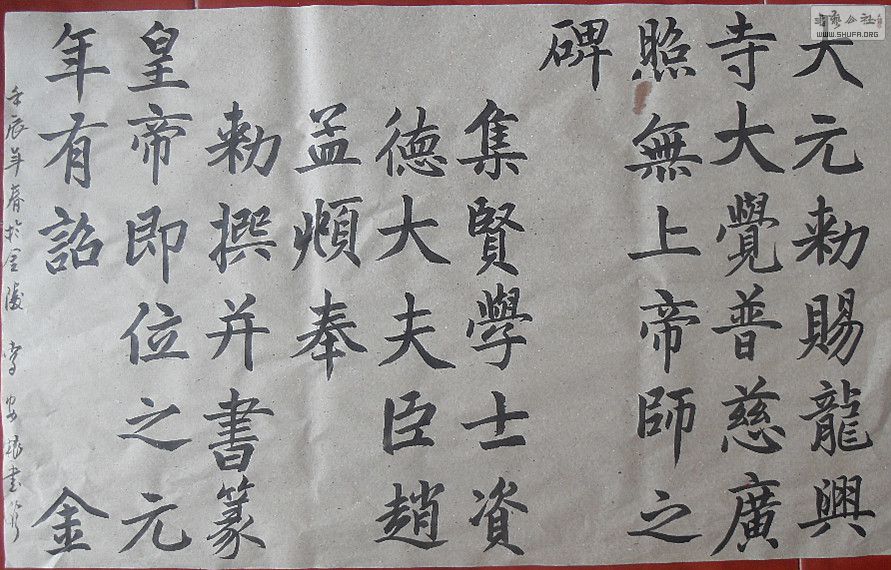 大元勅賜龍興
寺大覺普慈廣
照無上帝師之
碑
集賢學士資
德大夫臣趙
孟頫奉
勅撰并書篆
皇帝即位之元
年有詔 金
壬辰年春於金陵
书艺公社
WWW.SHUFA.ORG